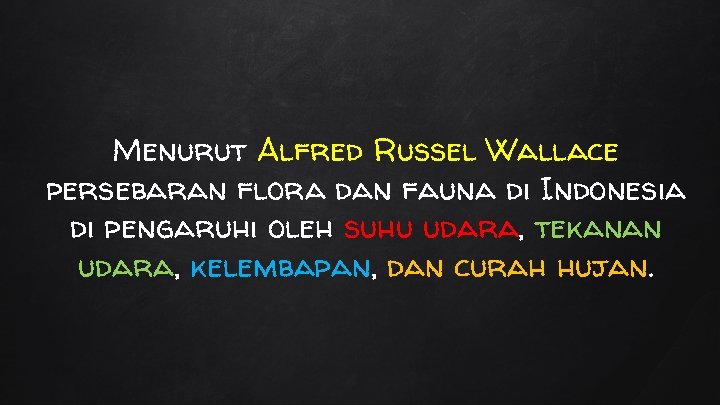 Menurut Alfred Russel Wallace
persebaran flora dan fauna di Indonesia
di pengaruhi oleh suhu udara, tekanan
udara, kelembapan, dan curah hujan.